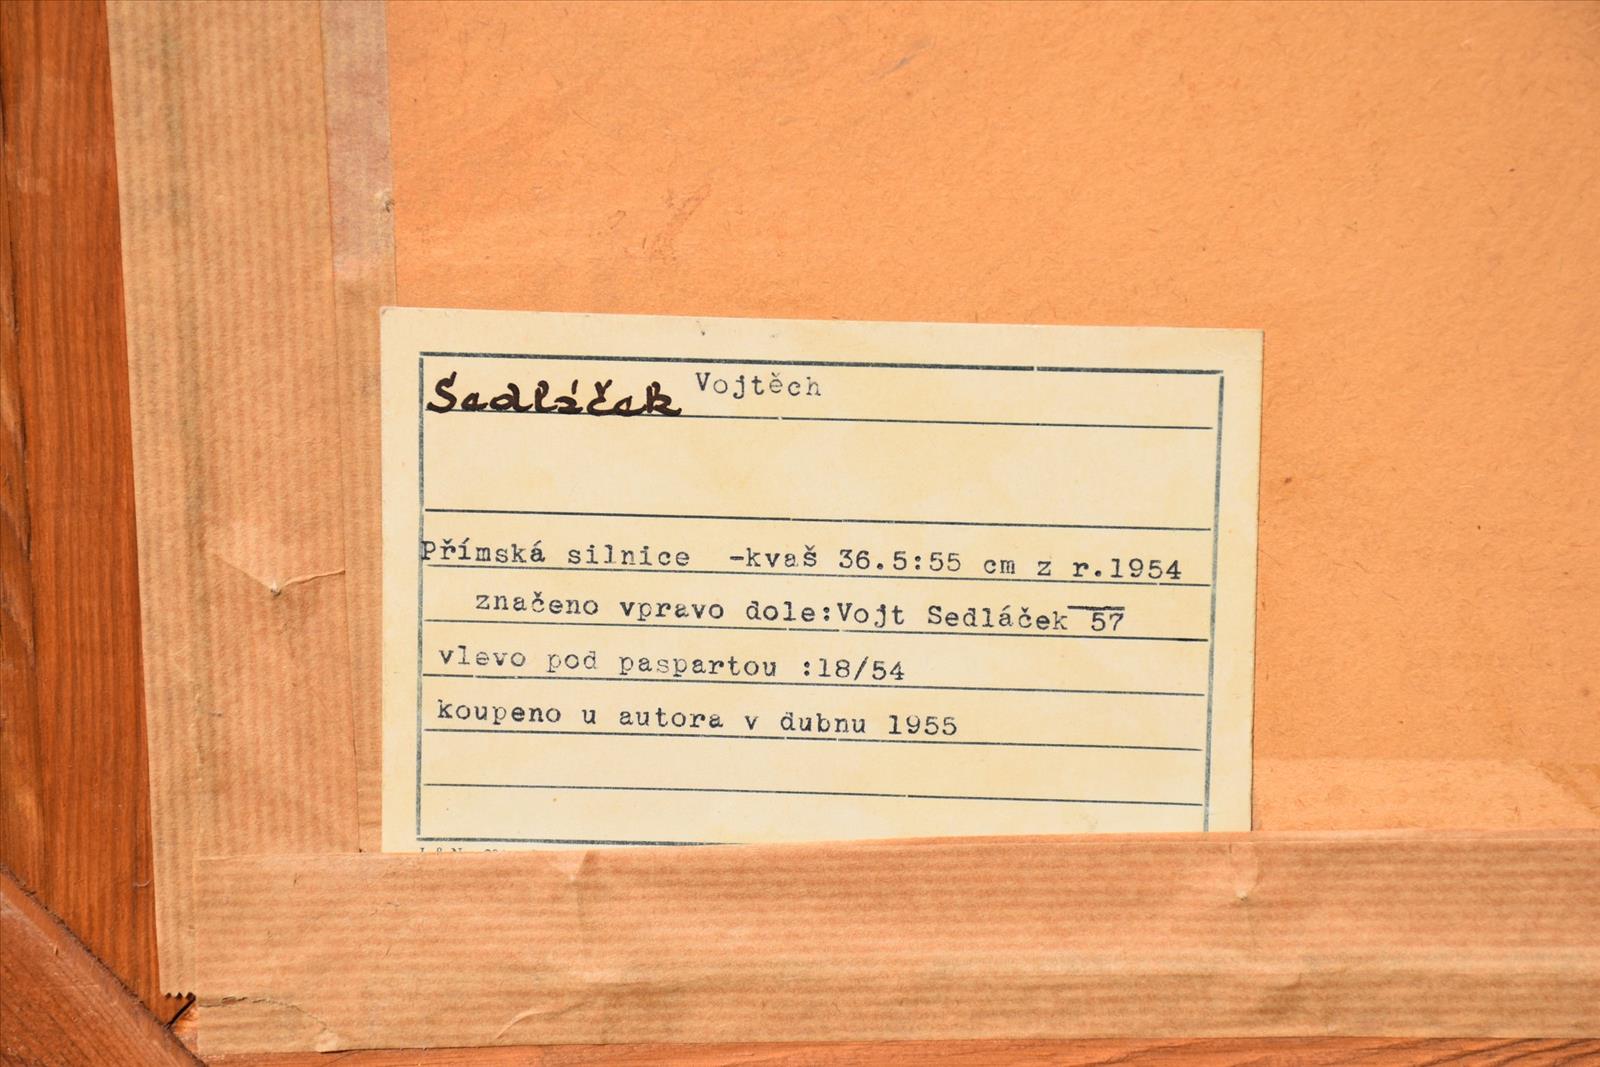 Sedláček Vojtěch
Přímská silnice -kvaš 36.5:55 cm z r.1954
značeno vpravo dole:Vojt Sedláček 57
vlevo pod paspartou :18/54
koupeno u autora v dubnu 1955